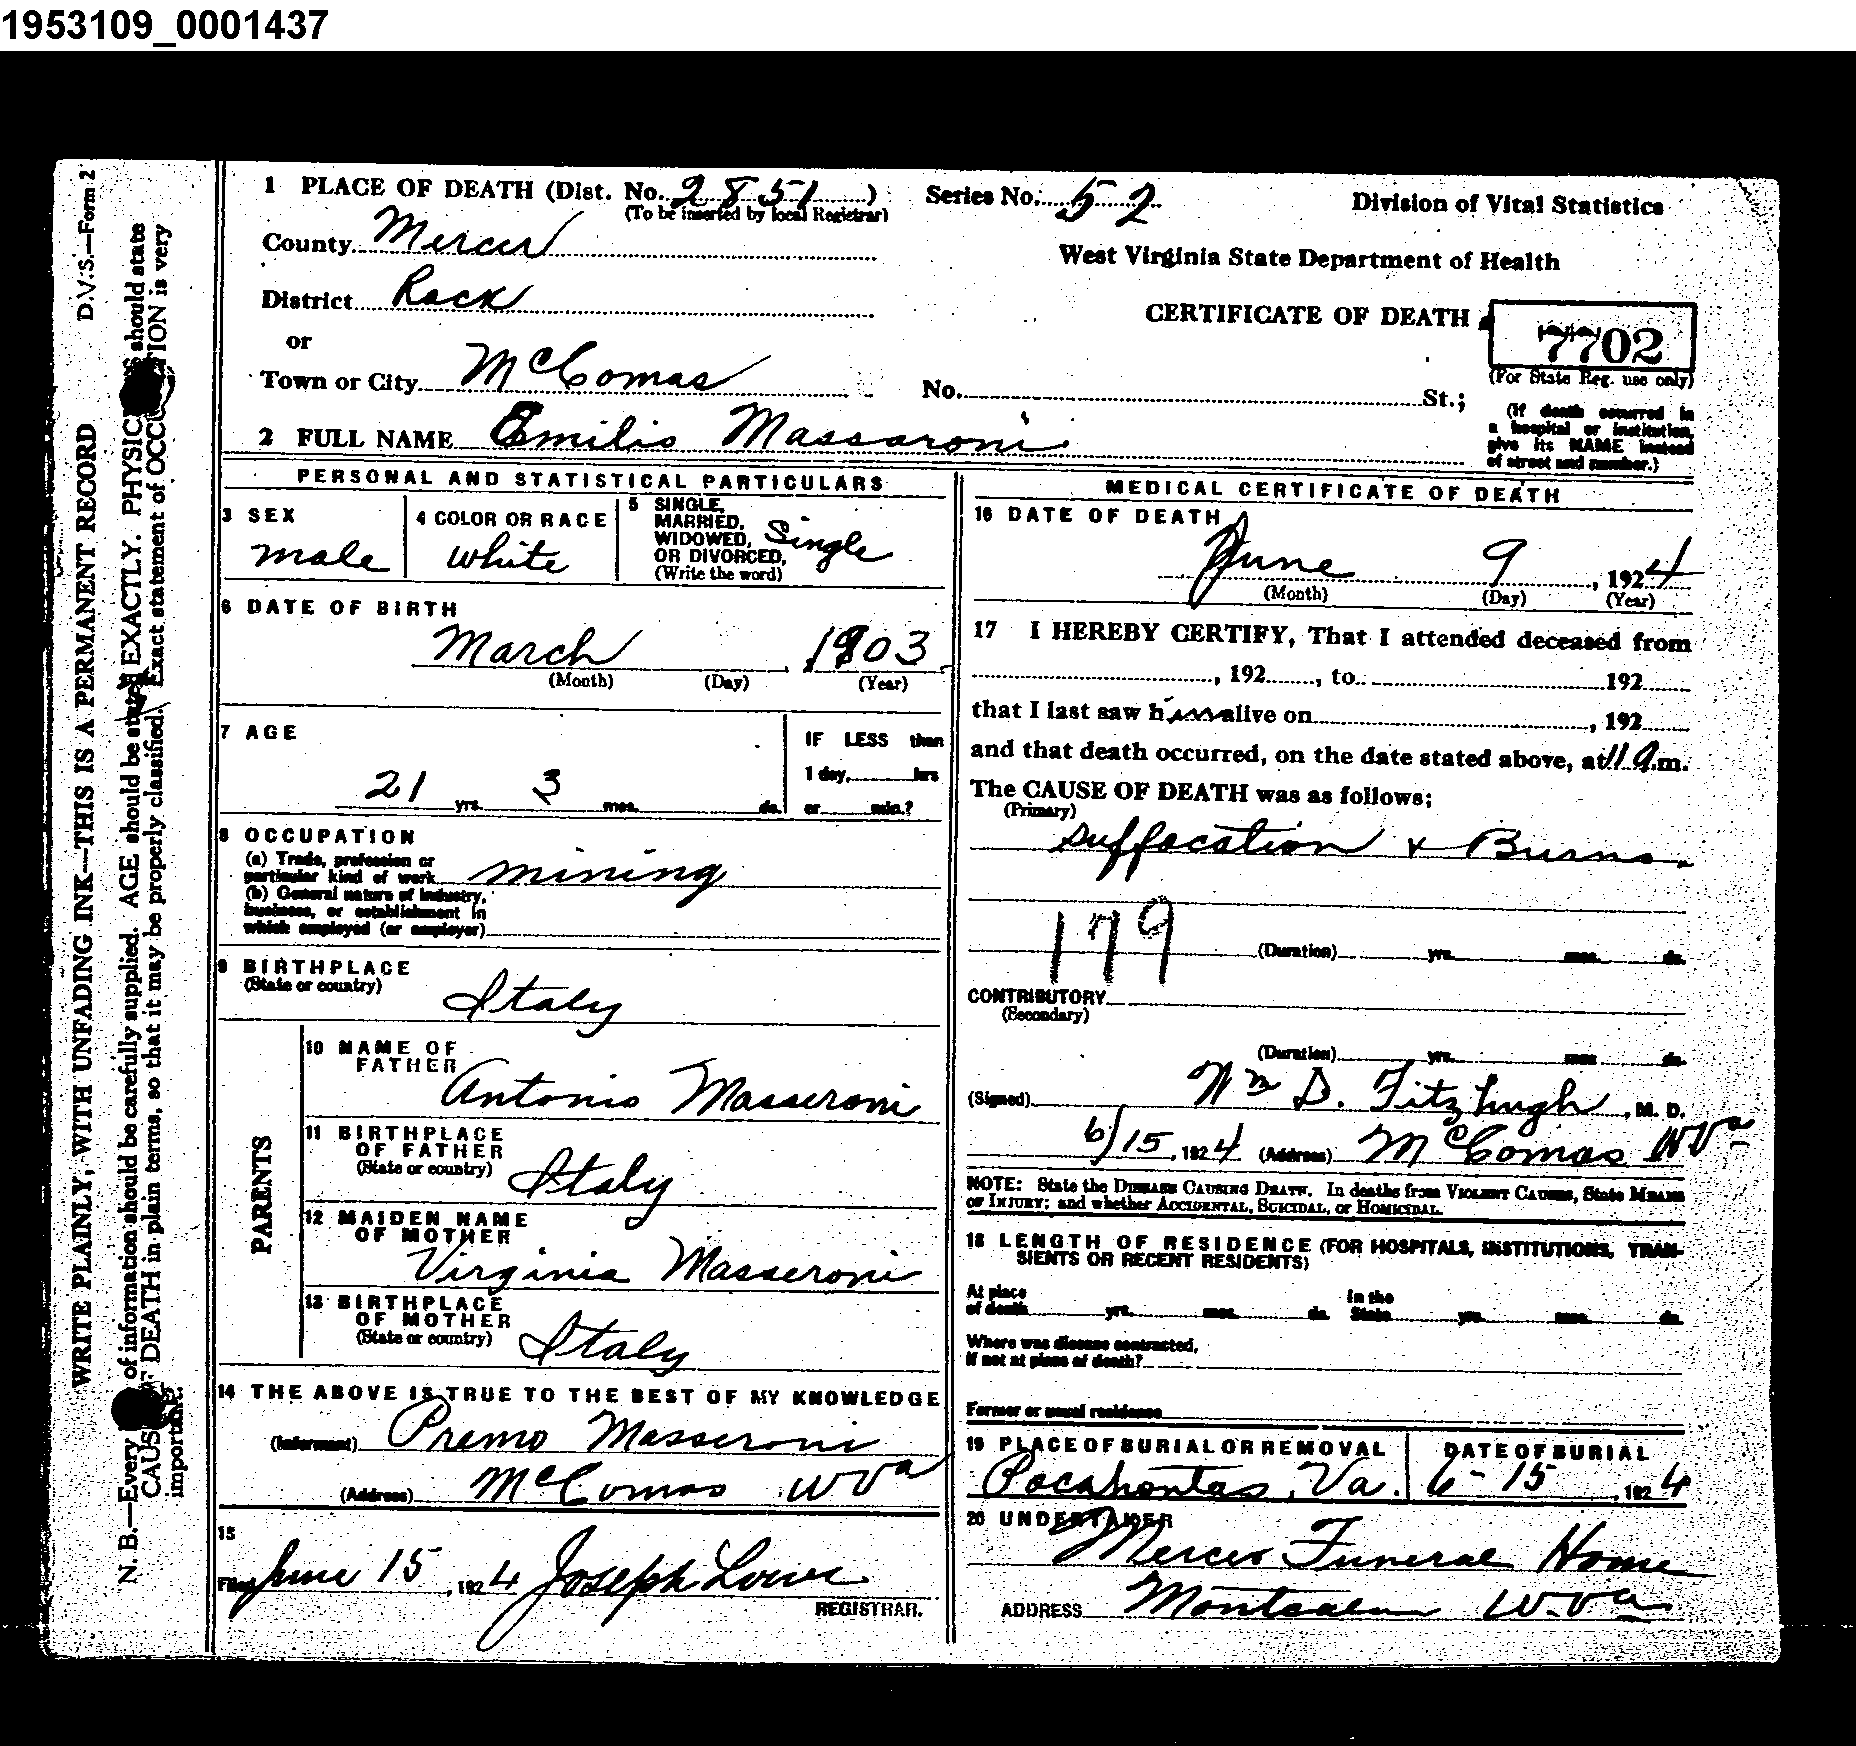 1953109_0001437
D.V.S.—Form 2
WRITE PLAINLY, WITH UNFADING INK—THIS IS A PERMANENT RECORD
N. B.—Every of information should be carefully supplied. AGE should be stated EXACTLY. PHYSIC should state
CAUS DEATH in plain terms, so that it may be properly classified. Exact statement of OCCU TION is very
important.
1 PLACE OF DEATH (Dist. No. 2851)
(To be inserted by local Registrar)
County Mercer
District Rock
or
Town or City McComas
Series No. 52
Division of Vital Statistics
West Virginia State Department of Health
CERTIFICATE OF DEATH
7702
(For State Reg. use only)
No. St.;
(If death occurred in
a hospital or institution,
give its NAME instead
of street and number.)
2 FULL NAME Emilio Massaroni
PERSONAL AND STATISTICAL PARTICULARS
3 SEX
male
4 COLOR OR RACE
white
5 SINGLE,
MARRIED,
WIDOWED,
OR DIVORCED,
(Write the word)
Single
6 DATE OF BIRTH
March 1903
(Month) (Day) (Year)
7 AGE
21 yrs. 3 mos. ds.
IF LESS than
1 day, hrs
or min.?
8 OCCUPATION
(a) Trade, profession or
particular kind of work mining
(b) General nature of industry,
business, or establishment in
which employed (or employer)
9 BIRTHPLACE
(State or country)
Italy
PARENTS
10 NAME OF
FATHER
Antonio Masseroni
11 BIRTHPLACE
OF FATHER
(State or country)
Italy
12 MAIDEN NAME
OF MOTHER
Virginia Masseroni
13 BIRTHPLACE
OF MOTHER
(State or country)
Italy
14 THE ABOVE IS TRUE TO THE BEST OF MY KNOWLEDGE
(Informant) Premo Masseroni
(Address) McComas WVa
15
Filed June 15, 1924 Joseph Lowe
REGISTRAR.
MEDICAL CERTIFICATE OF DEATH
16 DATE OF DEATH
June 9, 1924
(Month) (Day) (Year)
17 I HEREBY CERTIFY, That I attended deceased from
, 192 , to 192
that I last saw him alive on , 192
and that death occurred, on the date stated above, at 11 a.m.
The CAUSE OF DEATH was as follows;
(Primary)
Suffocation + Burns.
179
(Duration) yrs. mos. ds.
CONTRIBUTORY
(Secondary)
(Duration) yrs. mos. ds.
(Signed) Wm D. Fitzhugh, M. D.
6/15, 1924 (Address) McComas WVa
NOTE: State the DISEASE CAUSING DEATH. In deaths from VIOLENT CAUSES, State MEANS
OF INJURY; and whether ACCIDENTAL, SUICIDAL, or HOMICIDAL.
18 LENGTH OF RESIDENCE (FOR HOSPITALS, INSTITUTIONS, TRAN-
SIENTS OR RECENT RESIDENTS)
At place
of death yrs. mos. ds.
In the
State yrs. mos. ds.
Where was disease contracted,
if not at place of death?
Former or usual residence
19 PLACE OF BURIAL OR REMOVAL
Pocahontas, Va.
DATE OF BURIAL
6-15, 1924
20 UNDERTAKER
Mercer Funeral Home
ADDRESS Montcalm W.Va